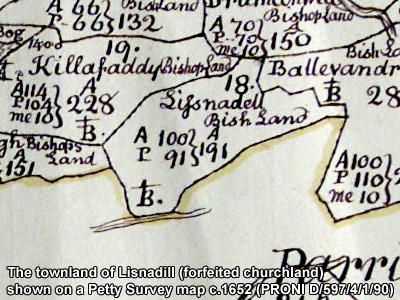 A 66
P 66
132
Bish Land
Bishop Land
A 70
P 79
me 10
150
Bog
1400
19.
Killafaddy
Bishop Land
A 114
P 104
me 10
A
228
B.
18.
Lissnadell
Bish Land
A 100
P 91
A
191
B.
Ballevandr
Bish La
B
28
Bishops
Land
151
A 100
P 110
me 10
2
Parri
The townland of Lisnadill (forfeited churchland)
shown on a Petty Survey map c.1652 (PRONI D/597/4/1/90)